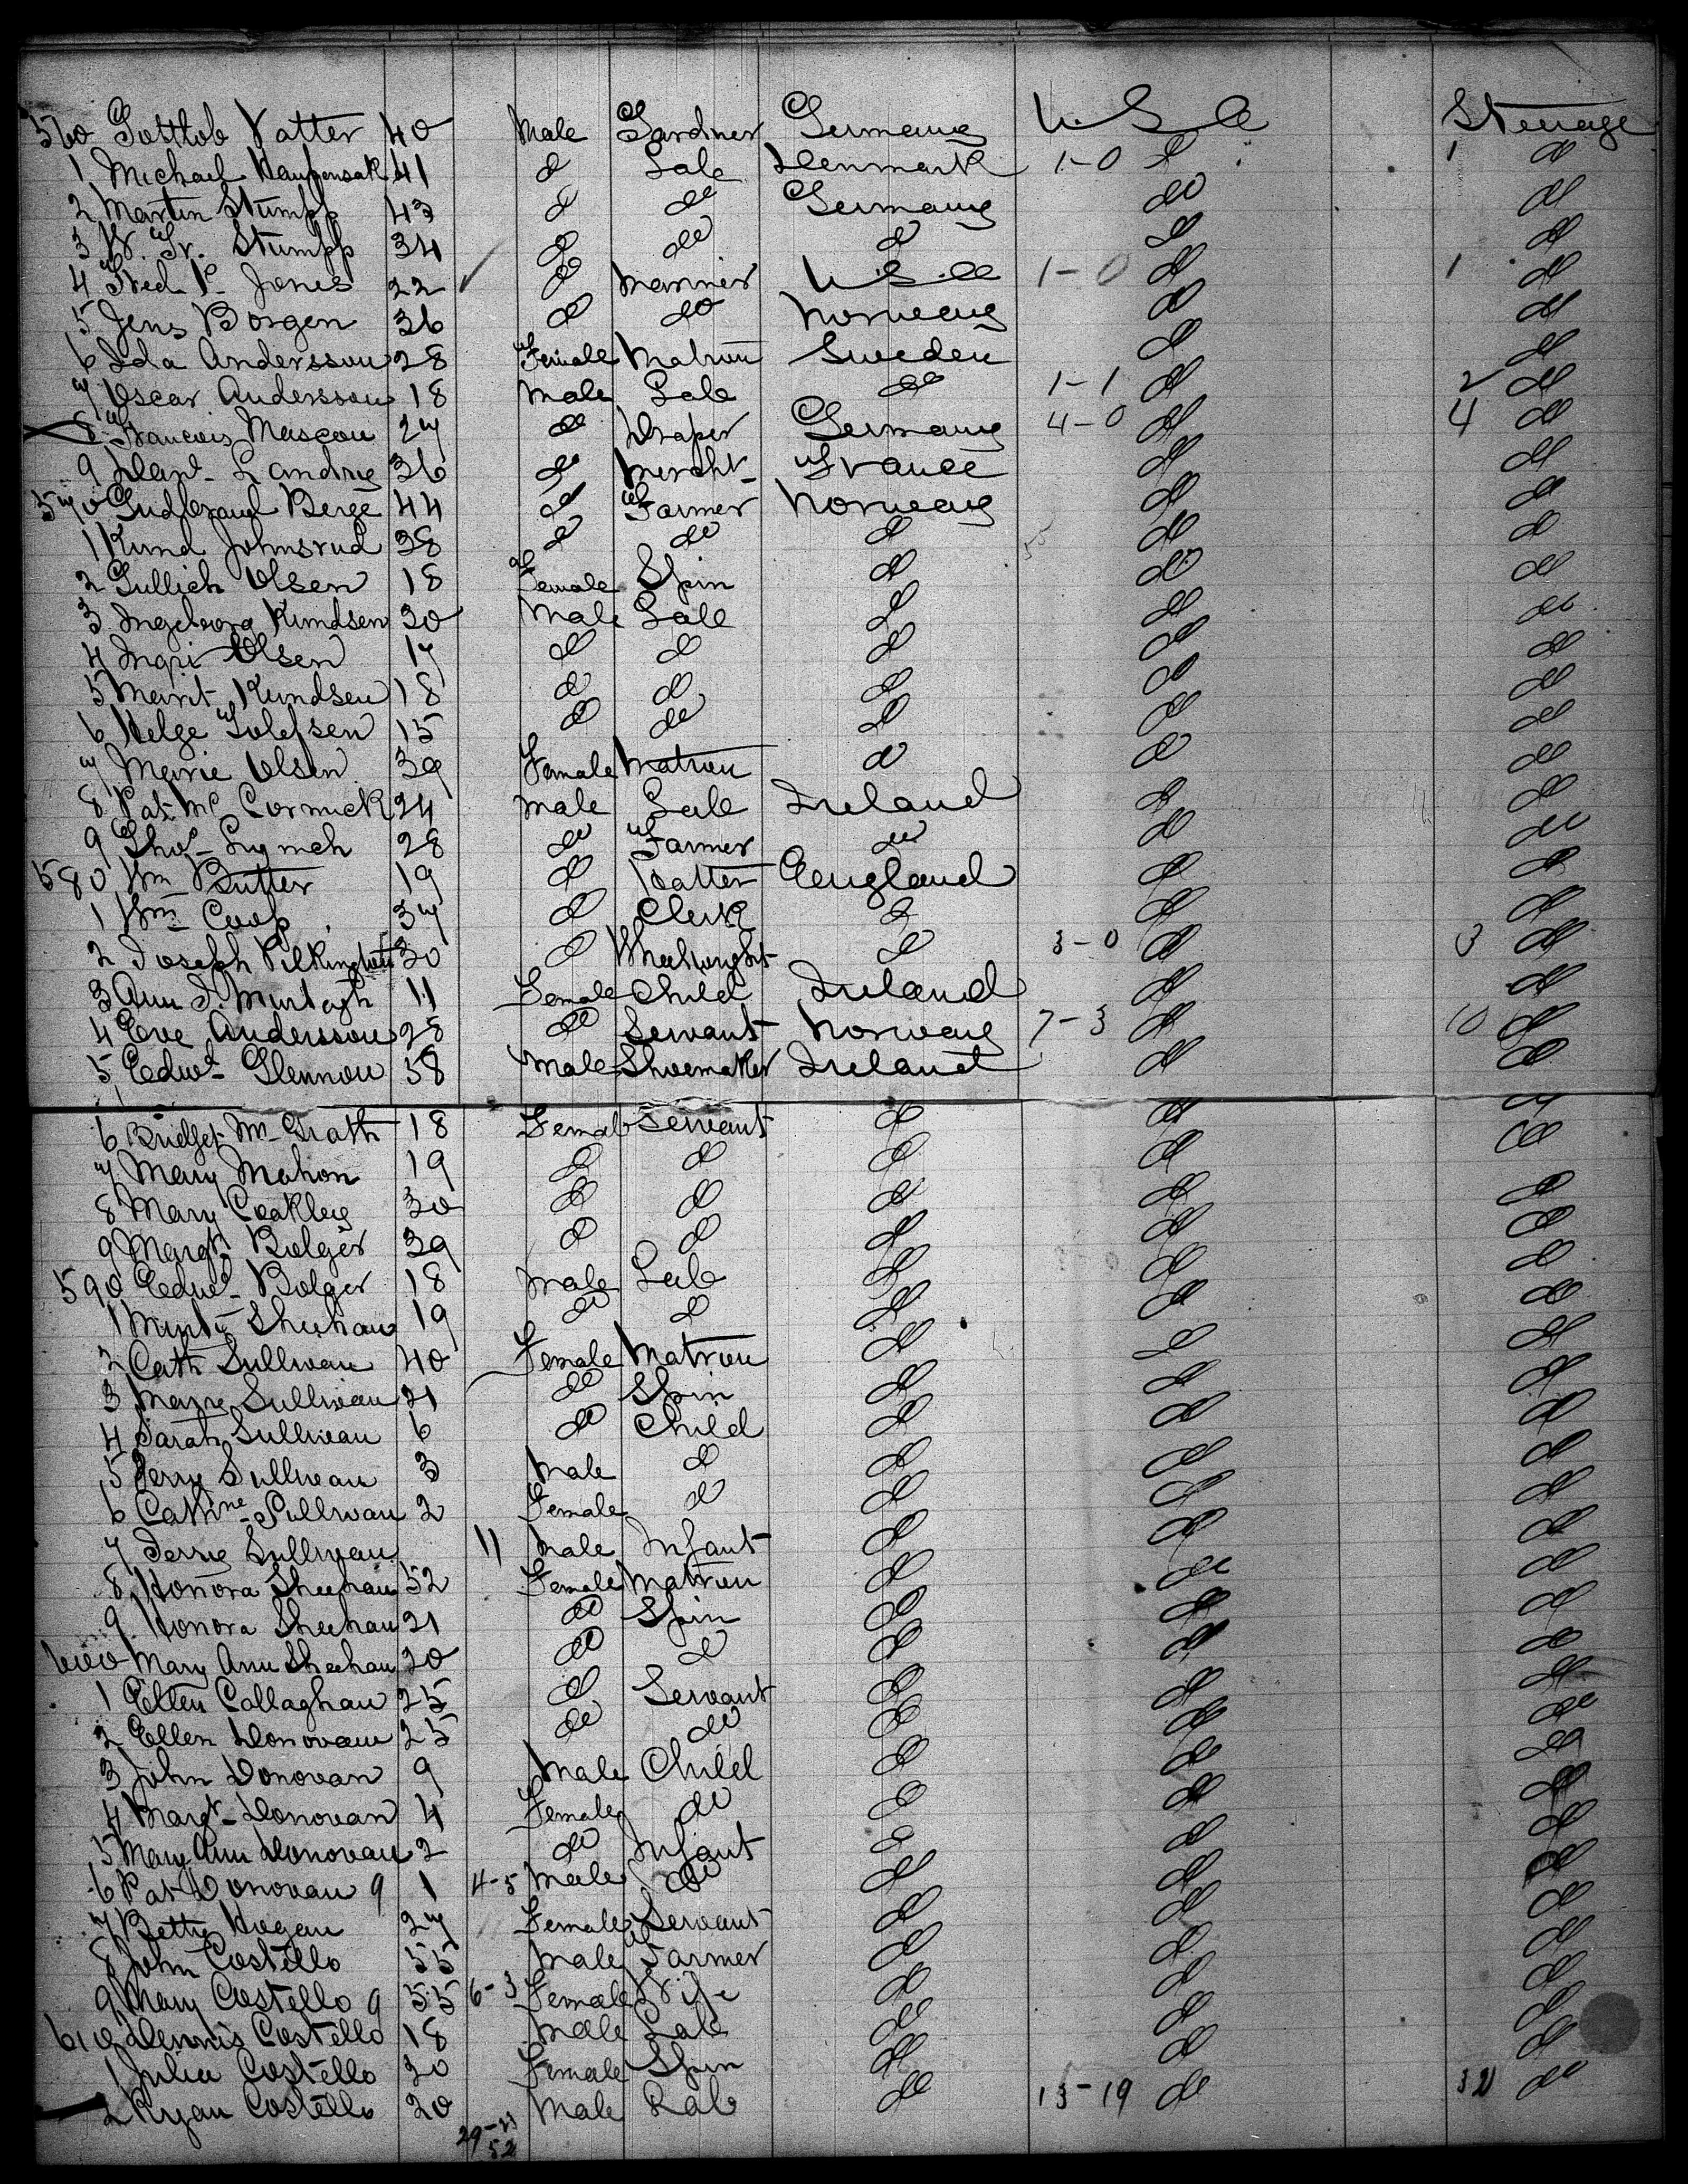 560 Gottlob Vatter 40 Male Gardner Germany U.S.A Steerage
1 Michael 41 do Lab Denmark 1-0 do 1 do
2 Martin Stumpp 43 do do Germany do do
3 W. Fr. Stumpp 34 do do do do do
4 Fred P. Jones 22 do Mariner U.S.A 1-0 do 1 do
5 Jens Borgen 36 do do Norway do do
6 Ida Andersson 28 Female Matron Sweden do do
7 Oscar Andersson 18 Male Lab do 1-1 do 2 do
8 Francois Mascou 27 do Draper Germany 4-0 do 4 do
9 Dav- Landry 36 do Mercht- France do do
570 Gudbrand Berge 44 do Farmer Norway do do
1 Knud Johnsrud 38 do do do do do
2 Gullich Olsen 18 Female Spin do do do
3 Ingeborg Kundsen 30 Male Lab do do do
4 Ingri Olsen 17 do do do do do
5 Marit Kundsen 18 do do do do do
6 Helge Tolefsen 15 do do do do do
7 Marie Olsen 39 Female Matron do do do
8 Pat- Mc Cormick 24 Male Lab Ireland do do
9 Thos- Lynch 28 do Farmer do do do
580 Wm Butter 19 do England do do
1 Wm- Coop 37 do Clerk do do do
2 Joseph Pilkington 30 do Wheelwright do 3-0 do 3 do
3 Ann J. Murtagh 11 Female Child Ireland do do
4 Eve Andersson 28 do Servant Norway 7-3 do 10 do
5 Edwd- Glennon 58 Male Shoemaker Ireland do do
6 Bridget Mc- Grath 18 Female Servant do do do
7 Mary Mahon 19 do do do do do
8 Mary Coakley 30 do do do do do
9 Margt- Bolger 39 do do do do do
590 Edwd- Bolger 18 Male Lab do do do
1 Sheehan 19 do do do do do
2 Cath Sullivan 40 Female Matron do do do
3 Mary Sullivan 21 do Spin do do do
4 Sarah Sullivan 6 do Child do do do
5 Jerry Sullivan 3 Male do do do do
6 Cathne- Sullivan 2 Female do do do do
7 Sullivan 11 Male Infant do do do
8 Honora Sheehan 52 Female Matron do do do
9 Honora Sheehan 21 do Spin do do do
600 Mary Ann Sheehan 20 do do do do do
1 Ellen Callaghan 25 do Servant do do do
2 Ellen Donovan 25 do do do do do
3 John Donovan 9 Male Child do do do
4 Margt- Donovan 4 Female do do do do
5 Mary Ann Donovan 2 do Infant do do do
6 Pat Donovan 9 1 4-5 Male do do do do
7 Betty Hogan 27 Female Servant do do do
8 John Costello 55 Male Farmer do do do
9 Mary Costello 9 55 6-3 Female Wife do do do
610 Dennis Costello 18 Male Lab do do do
1 Julia Costello 20 Female Spin do do do
2 Ryan Costello 20 Male Lab do 13-19 do 32 do
29-23
52